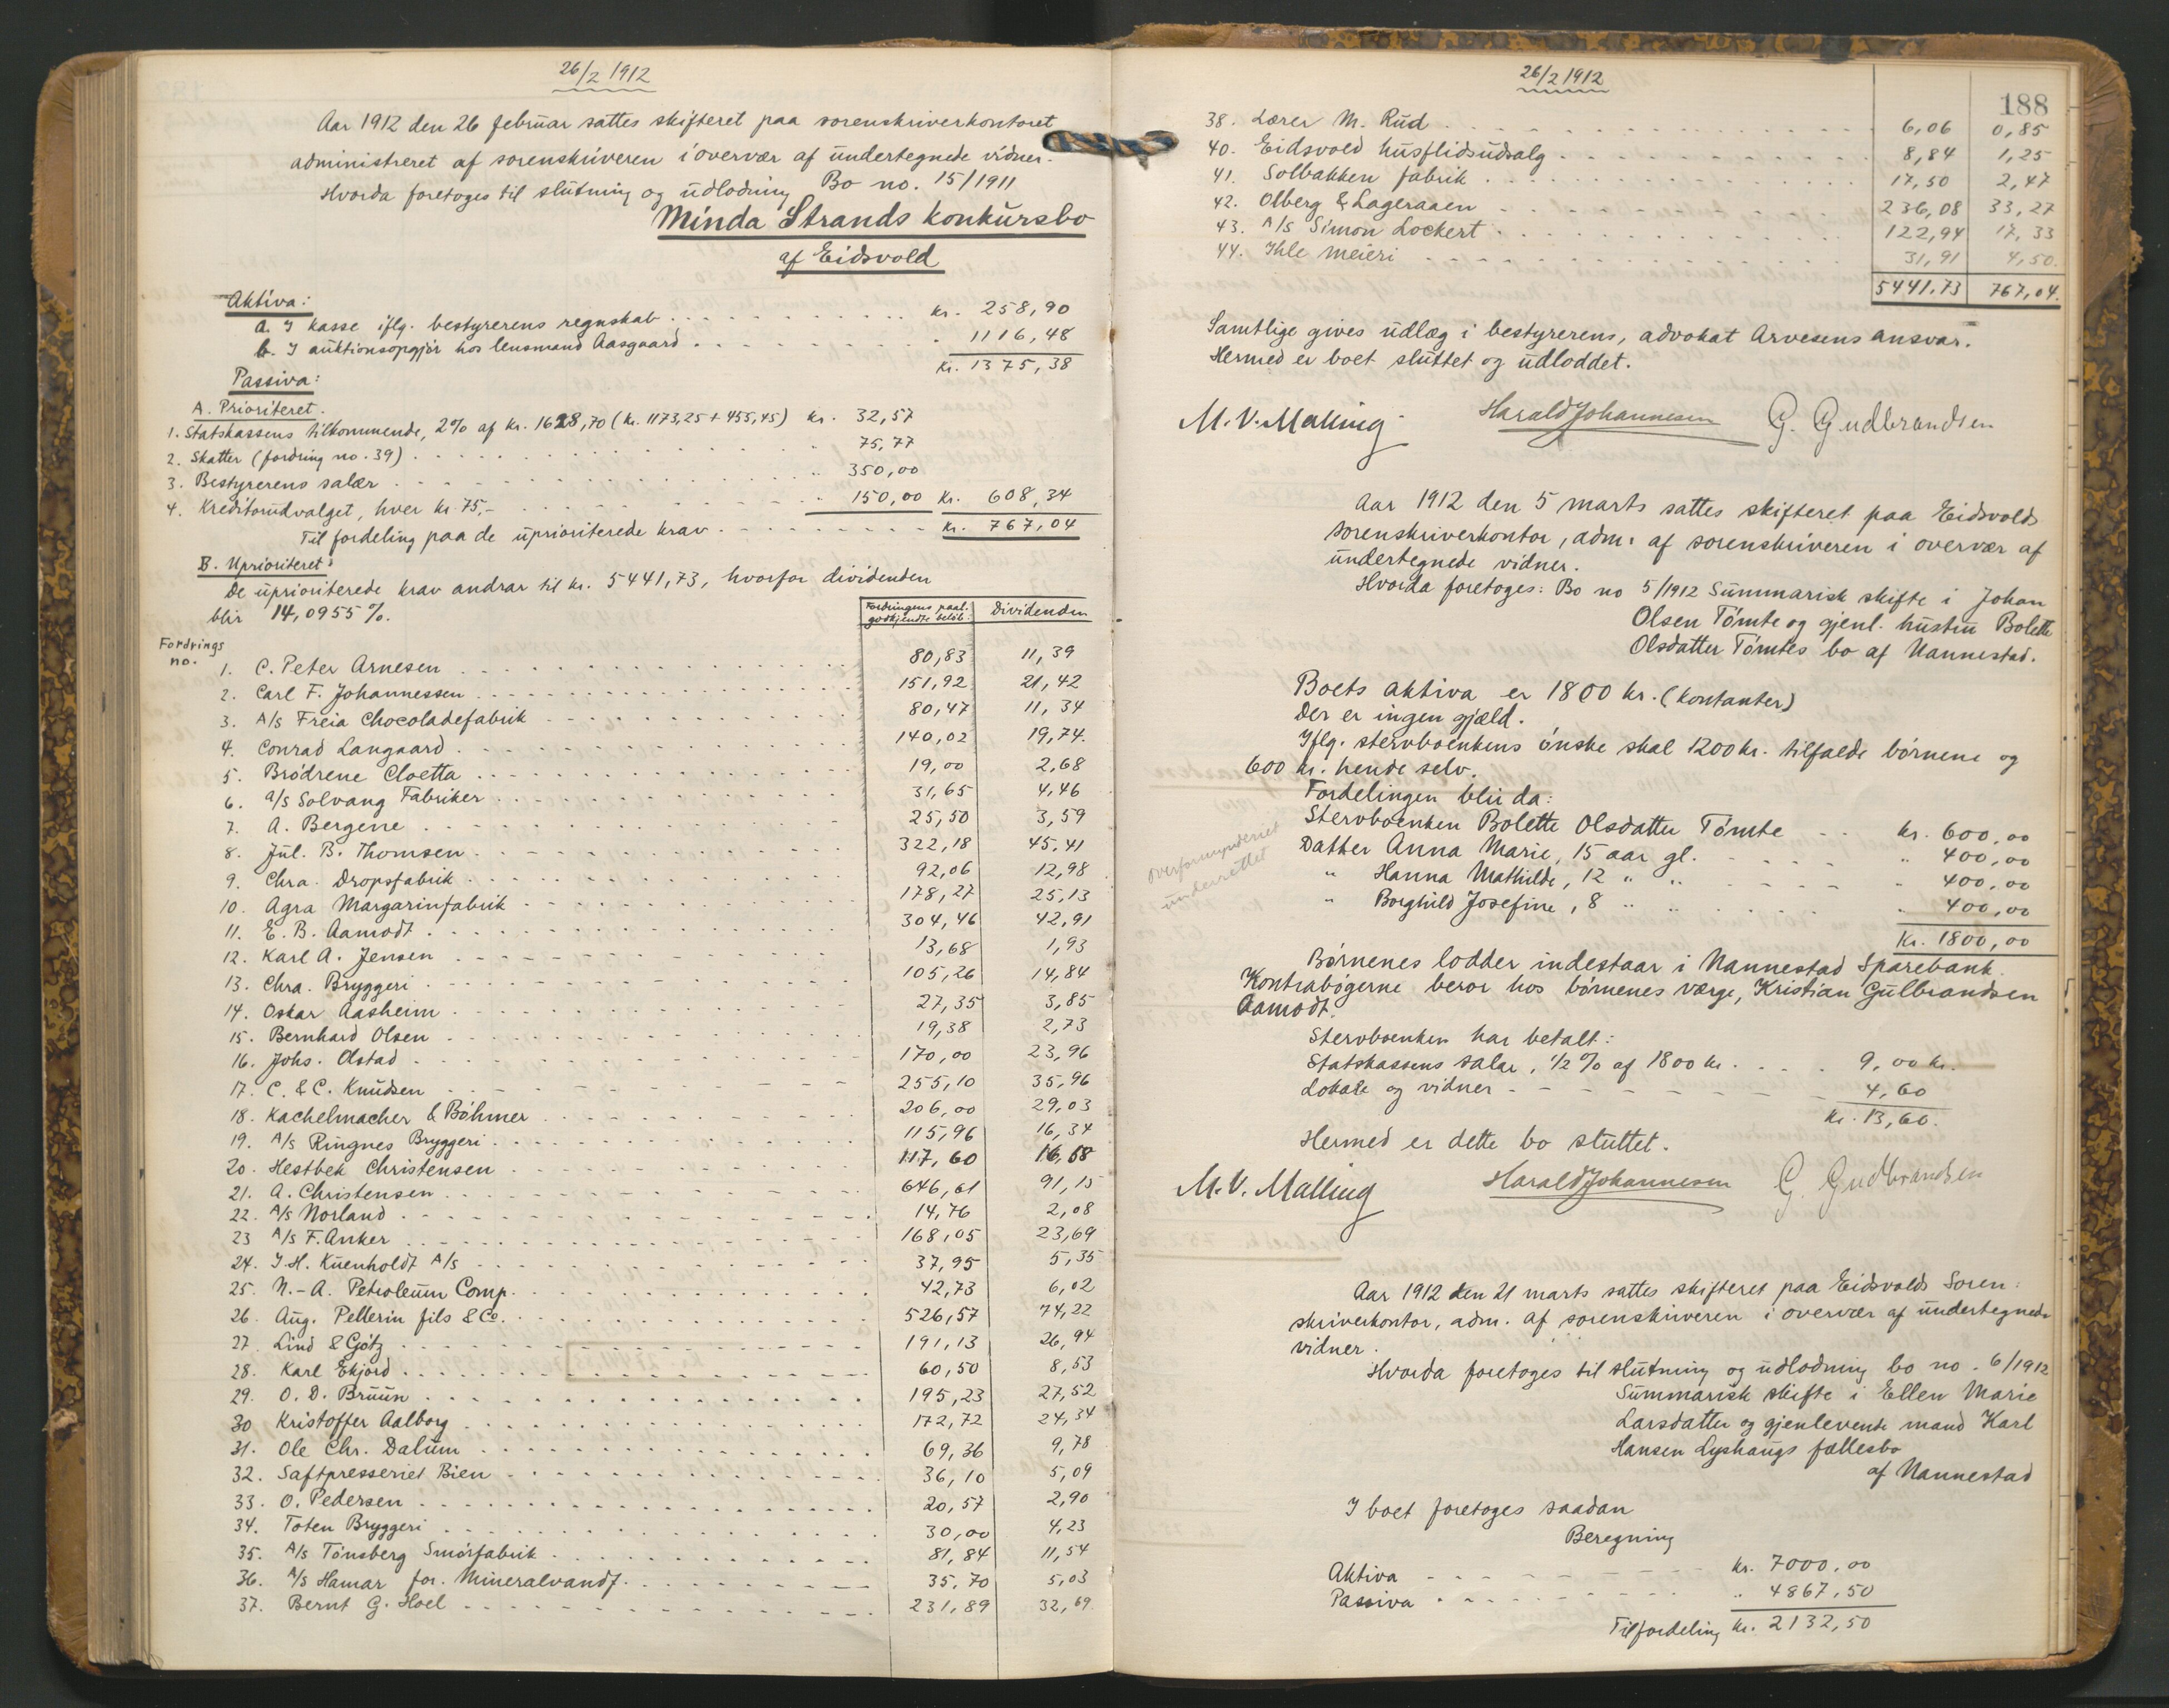 26/2 1912
Aar 1912 den 26 februar sattes skifteret paa sorenskriverkontoret
administreret af sorenskriveren i overvær af undertegnede vidner.
Hvorda foretoges til slutning og udlodning Bo no. 15/1911
Minda Strands konkursbo
af Eidsvold
Aktiva:
a. I kasse iflg. bestyrerens regnskab . . . kr. 258,90
b. I auktionsopgjør hos lensmand Aasgaard . . . 1116,48
Kr. 1375,38
Passiva:
A. Prioriteret.
1. Statskassens tilkommende, 2% af kr. 1628,70 (kr. 1173,25 + 455,45) kr. 32,57
2. Skatter (fordring no. 39) . . . " 75,77
3. Bestyrerens salær . . . " 350,00
4. Kreditorudvalget, hver kr. 75,- . . . " 150,00 Kr. 608,34
Til fordeling paa de uprioriterede krav . . . Kr. 767,04
B. Uprioriteret:
De uprioriterede krav andrar til kr. 5441,73, hvorfor dividenden
blir 14,0955 %.
Fordringens paal. godkjendte beløb. Dividenden
Fordrings no.
1. C. Peter Arnesen . . . 80,83 11,39
2. Carl F. Johannessen . . . 151,92 21,42
3. A/s Freia Chocoladefabrik . . . 80,47 11,34
4. Conrad Langaard . . . 140,02 19,74.
5. Brødrene Cloetta . . . 19,00 2,68
6. A/s Solvang Fabriker . . . 31,65 4,46
7. A. Bergene . . . 25,50 3,59
8. Jul. B. Thomsen . . . 322,18 45,41
9. Chra. Dropsfabrik . . . 92,06 12,98
10. Agra Margarinfabrik . . . 178,27 25,13
11. E. B. Aamodt . . . 304,46 42,91
12. Karl A. Jensen . . . 13,68 1,93
13. Chra. Bryggeri . . . 105,26 14,84
14. Oskar Aasheim . . . 27,35 3,85
15. Bernhard Olsen . . . 19,38 2,73
16. Johs. Olstad . . . 170,00 23,96
17. C. & C. Knudsen . . . 255,10 35,96
18. Kachelmacher & Böhmer . . . 206,00 29,03
19. A/s Ringnes Bryggeri . . . 115,96 16,34
20. Hestbek Christensen . . . 117,60 16,68
21. A. Christensen . . . 646,61 91,15
22. A/s Norland . . . 14,76 2,08
23 A/s F. Anker . . . 168,05 23,69
24. J. H. Kuenholdt A/s . . . 37,95 5,35
25. N.-A. Petroleum Comp. . . . 42,73 6,02
26. Aug. Pellerin fils & Co. . . . 526,57 74,22
27. Lind & Götz . . . 191,13 26,94
28. Karl Ekjord . . . 60,50 8,53
29. O. D. Bruun . . . 195,23 27,52
30 Kristoffer Aalborg . . . 172,72 24,34
31. Ole Chr. Dalum . . . 69,36 9,78
32. Saftpresseriet Bien . . . 36,10 5,09
33. O. Pedersen . . . 20,57 2,90
34. Toten Bryggeri . . . 30,00 4,23
35. A/s Tønsberg Smørfabrik . . . 81,84 11,54
36. A/s Hamar for. Mineralvandf. . . . 35,70 5,03
37. Bernt G. Hoel . . . 231,89 32,69.
26/2 1912
188
38. Lærer M. Rud . . . 6,06 0,85
40. Eidsvold husflidsudsalg . . . 8,84 1,25
41. Solbakken fabrik . . . 17,50 2,47
42. Olberg & Lageraaen . . . 236,08 33,27
43. A/s Simon Lockert . . . 122,94 17,33
44. Ihle meieri . . . 31,91 4,50.
5441,73 767,04.
Samtlige gives udlæg i bestyrerens, advokat Arvesens ansvar.
Hermed er boet sluttet og udloddet.
M. V. Malling Harald Johannesen G. Gudbrandsen
Aar 1912 den 5 marts sattes skifteret paa Eidsvolds
sorenskriverkontor, adm. af sorenskriveren i overvær af
undertegnede vidner.
Hvorda foretoges: Bo no 5/1912 Summarisk skifte i Johan
Olsen Tømte og gjenl. hustru Bolette
Olsdatter Tømtes bo af Nannestad.
Boets aktiva er 1800 kr. (kontanter)
Der er ingen gjæld.
Iflg. stervboenkens ønske skal 1200 kr. tilfalde børnene og
600 kr. hende selv.
Fordelingen blir da:
Stervboenken Bolette Olsdatter Tømte . . kr. 600,00
Datter Anna Marie, 15 aar gl. . . . " 400,00
" Hanna Mathilde, 12 " " . . . " 400,00
" Borghild Josefine, 8 " " . . . " 400,00
Kr. 1800,00
overformynderiet
underrettet
Børnenes lodder indestaar i Nannestad Sparebank.
Kontrabøgerne beror hos børnenes værge, Kristian Gulbrandsen
Aamodt.
Stervboenken har betalt:
Statskassens salær, 1/2 % af 1800 kr. . . . 9,00 kr.
Lokale og vidner . . . 4,60
Kr. 13,60.
Hermed er dette bo sluttet.
M. V. Malling Harald Johannesen G. Gudbrandsen
Aar 1912 den 21 marts sattes skifteret paa Eidsvolds Soren:
skriverkontor, adm. af sorenskriveren i overvær af undertegnede
vidner.
Hvorda foretoges til slutning og udlodning bo no. 6/1912
Summarisk skifte i Ellen Marie
Larsdatter og gjenlevende mand Karl
Hansen Lyshaugs fællesbo
af Nannestad
I boet foretoges saadan
Beregning
Aktiva . . . kr. 7000,00
Passiva . . . " 4867,50
Til fordeling kr. 2132,50